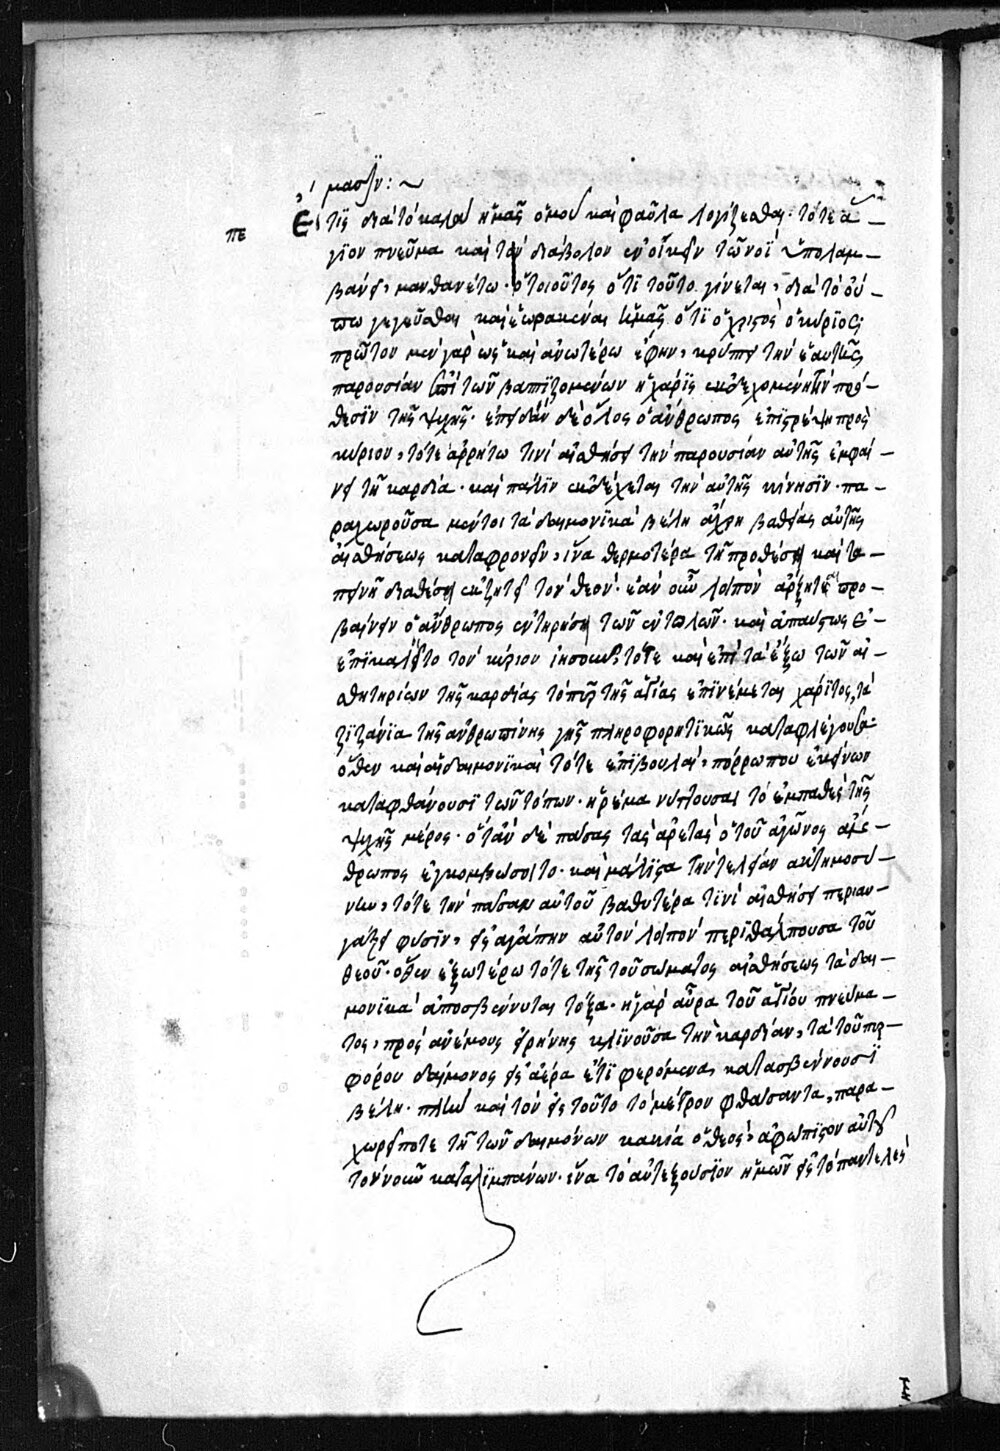 μασιν : ~
πε
Εἴ τις διὰ τὸ καλὰ ἡμᾶς ὁμοῦ καὶ φαῦλα λογίζεσθαι· τότε ἅ–
γιον πνεῦμα καὶ τὸν διάβολον ἐνοικεῖν τῷ νοῒ ὑπολαμ–
βάνει, μανθανέτω· ὁ τοιοῦτος ὅτι τοῦτο γίνεται, διὰ τὸ οὔ–
πω γεγεῦσθαι καὶ ἑωρακέναι ἡμᾶς ὅτι ὁ χριστὸς ὁ κύριος;
πρῶτον μὲν γὰρ ὡς καὶ ἀνωτέρω ἔφην, κρύπτει τὴν ἑαυτῆς
παρουσίαν ἐπὶ τῶν βαπτιζομένων ἡ χάρις ἐκδεχομένη τὴν πρό–
θεσιν τῆς ψυχῆς· ἐπειδὰν δὲ ὅλος ὁ ἄνθρωπος ἐπιστρέψῃ πρὸς
κύριον, τότε ἀρρήτω τινὶ αἰσθήσει τὴν παρουσίαν αὐτῆς ἐμφαί–
νει τῇ καρδία· καὶ πάλιν ἐκδέχεται τὴν αὐτῆς κίνησιν· πα–
ραχωροῦσα μέντοι τὰ δαιμονικὰ βέλη ἄχρι βαθείας αὐτῆς
αἰσθήσεως καταφρονεῖν, ἵνα θερμοτέρα τῇ προθέσει καὶ τα–
πεινῆ διαθέσει ἐκζητεῖ τὸν θεόν· ἐὰν οὖν λοιπὸν ἄρξηται προ–
βαίνειν ὁ ἄνθρωπος ἐν τηρήσει τῶν ἐντολῶν· καὶ ἀπαύστως
ἐπικαλεῖτο τὸν κύριον ἰησοῦν, τότε καὶ ἐπὶ τὰ ἔξω τῶν αἰ–
σθητηρίων τῆς καρδίας τὸ πῦρ τῆς ἁγίας ἐπινέμεται χάριτος, τὰ
ζιζάνια τῆς ἀνθρωπίνης γῆς πληροφορητικῶς καταφλέγουσα·
ὅθεν καὶ αἱ δαιμονικαὶ τότε ἐπιβουλαὶ, πόρρωπου ἐκείνων
καταφθάνουσι τῶν τόπων· ἠρέμα νύττουσαι τὸ ἐμπαθὲς τῆς
ψυχῆς μέρος· ὅταν δὲ πάσας τὰς ἀρετὰς ὁ τοῦ ἀγῶνος ἄν–
θρωπος ἐγκομβώσοιτο· καὶ μάλιστα τὴν τελείαν ἀκτημοσύ–
νην, τότε τὴν πᾶσαν αὐτοῦ βαθυτέρα τινὶ αἰσθήσει περιαυ–
γάζει φύσιν, εἰς ἀγάπην αὐτὸν λοιπὸν περιθάλπουσα τοῦ
θεοῦ· ὅθεν ἐξωτέρω τότε τῆς τοῦ σώματος αἰσθήσεως τὰ δαι–
μονικὰ ἀποσβέννυται τόξα· ἡ γὰρ αὔρα τοῦ ἁγίου πνεύμα–
τος, πρὸς ἀνέμους εἰρήνης κλινοῦσα τὴν καρδίαν, τὰ τοῦ πυρ–
φόρου δαίμονος εἰς ἀέρα ἔτι φερόμενα κατασβεννύουσι
βέλη· πλὴν καὶ τὸν εἰς τοῦτο τὸ μέτρον φθάσαντα, παρα–
χωρεῖ ποτε τῇ τῶν δαιμόνων κακία ὁ θεὸς, ἀφώτιστον αὐτοῦ
τὸν νοῦν καταλιμπάνων· ἵνα τὸ αὐτεξούσιον ἡμῶν εἰς τὸ παντελὲς